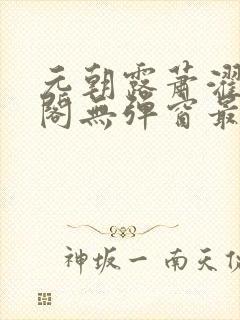 元朝露蕭濯
閣無彈窗最
神坂一 南天